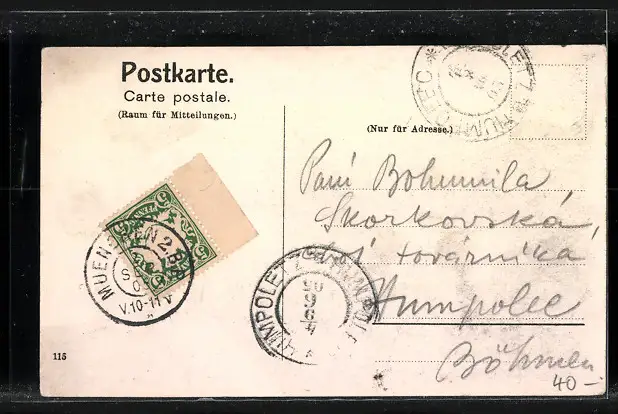 Postkarte.
Carte postale.
(Raum für Mitteilungen.)
(Nur für Adresse.)
HUMPOLETZ * HUMPOLEC *
Paní Bohumila
Skorkovská,
továrníka
Humpolec
Böhmen
5 5
MUENCHEN 2 B.P.
SEP
V.10-11 V
HUMPOLETZ * HUMPOLEC *
115
40 –